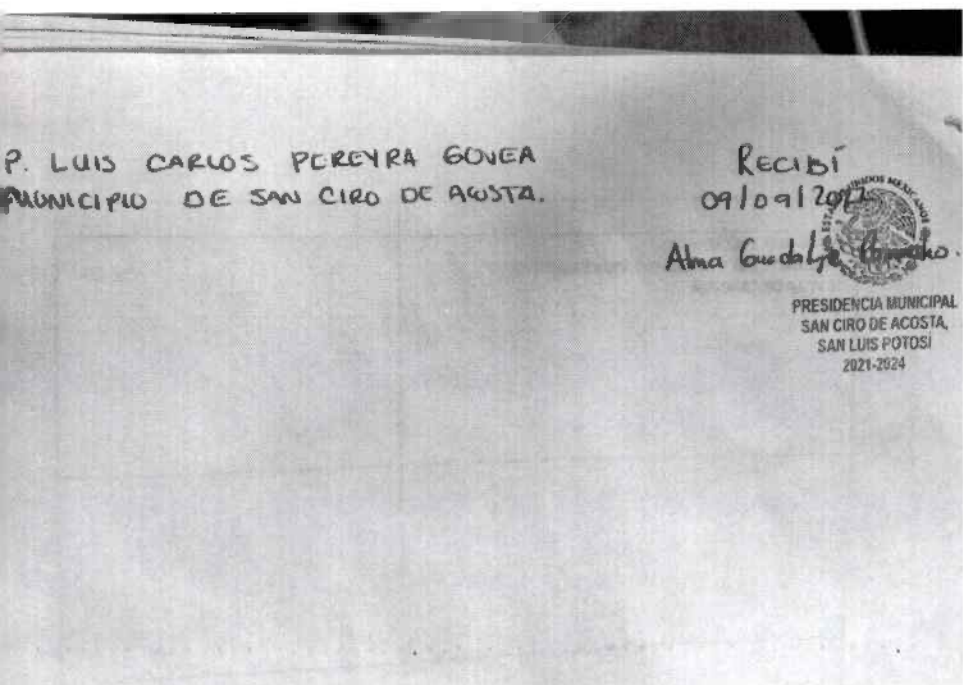 P. LUIS CARLOS PEREYRA GOVEA
MUNICIPIO DE SAN CIRO DE ACOSTA.
RECIBÍ
09/09/2022
Alma Guadalupe
ESTADOS UNIDOS MEXICANOS
PRESIDENCIA MUNICIPAL
SAN CIRO DE ACOSTA,
SAN LUIS POTOSÍ
2021-2024